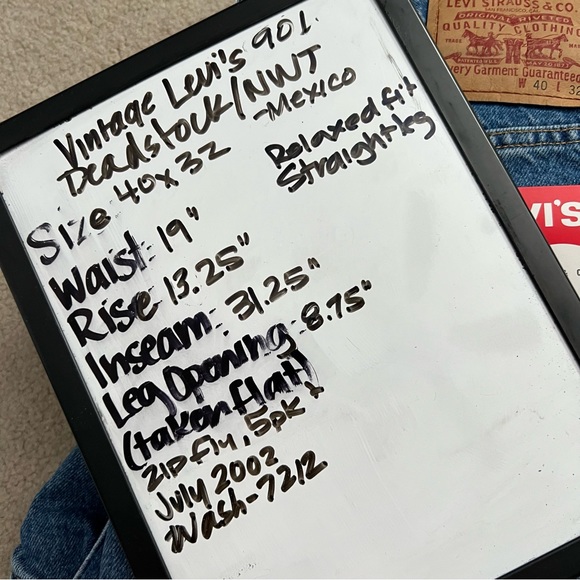 Vintage Levi's 901.
Deadstock/NWT
-Mexico
Relaxed fit
Straight leg
Size: 40x32
Waist: 19"
Rise 13.25"
Inseam: 31.25"
Leg Opening - 8.75"
(taken flat)
Zip fly, 5pkt
July 2002
Wash-7212
LEVI STRAUSS & CO.
SAN FRANCISCO, CAL.
ORIGINAL RIVETED
QUALITY CLOTHING
TRADE MARK
very Garment Guarantee
W 40 L 32
VI'S